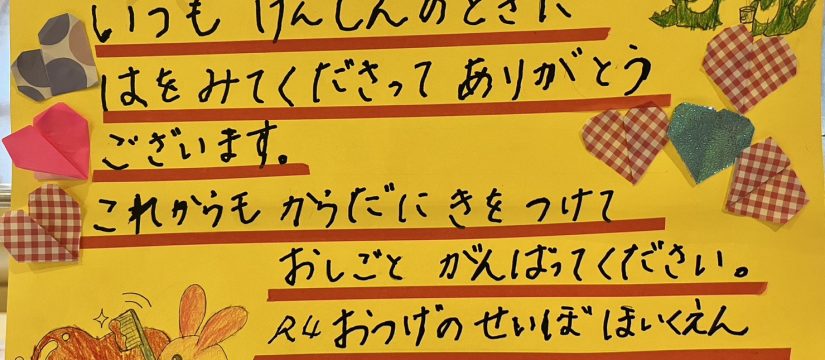 いつも けんしんのときに
はをみてくださって ありがとう
ございます。
これからも からだに きを つけて
おしごと がんばってください。
R4 おつげのせいぼ ほいくえん